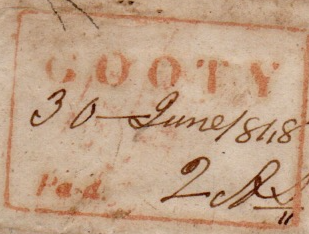 GOOTY
30 June / 1848
Paid. 2 As